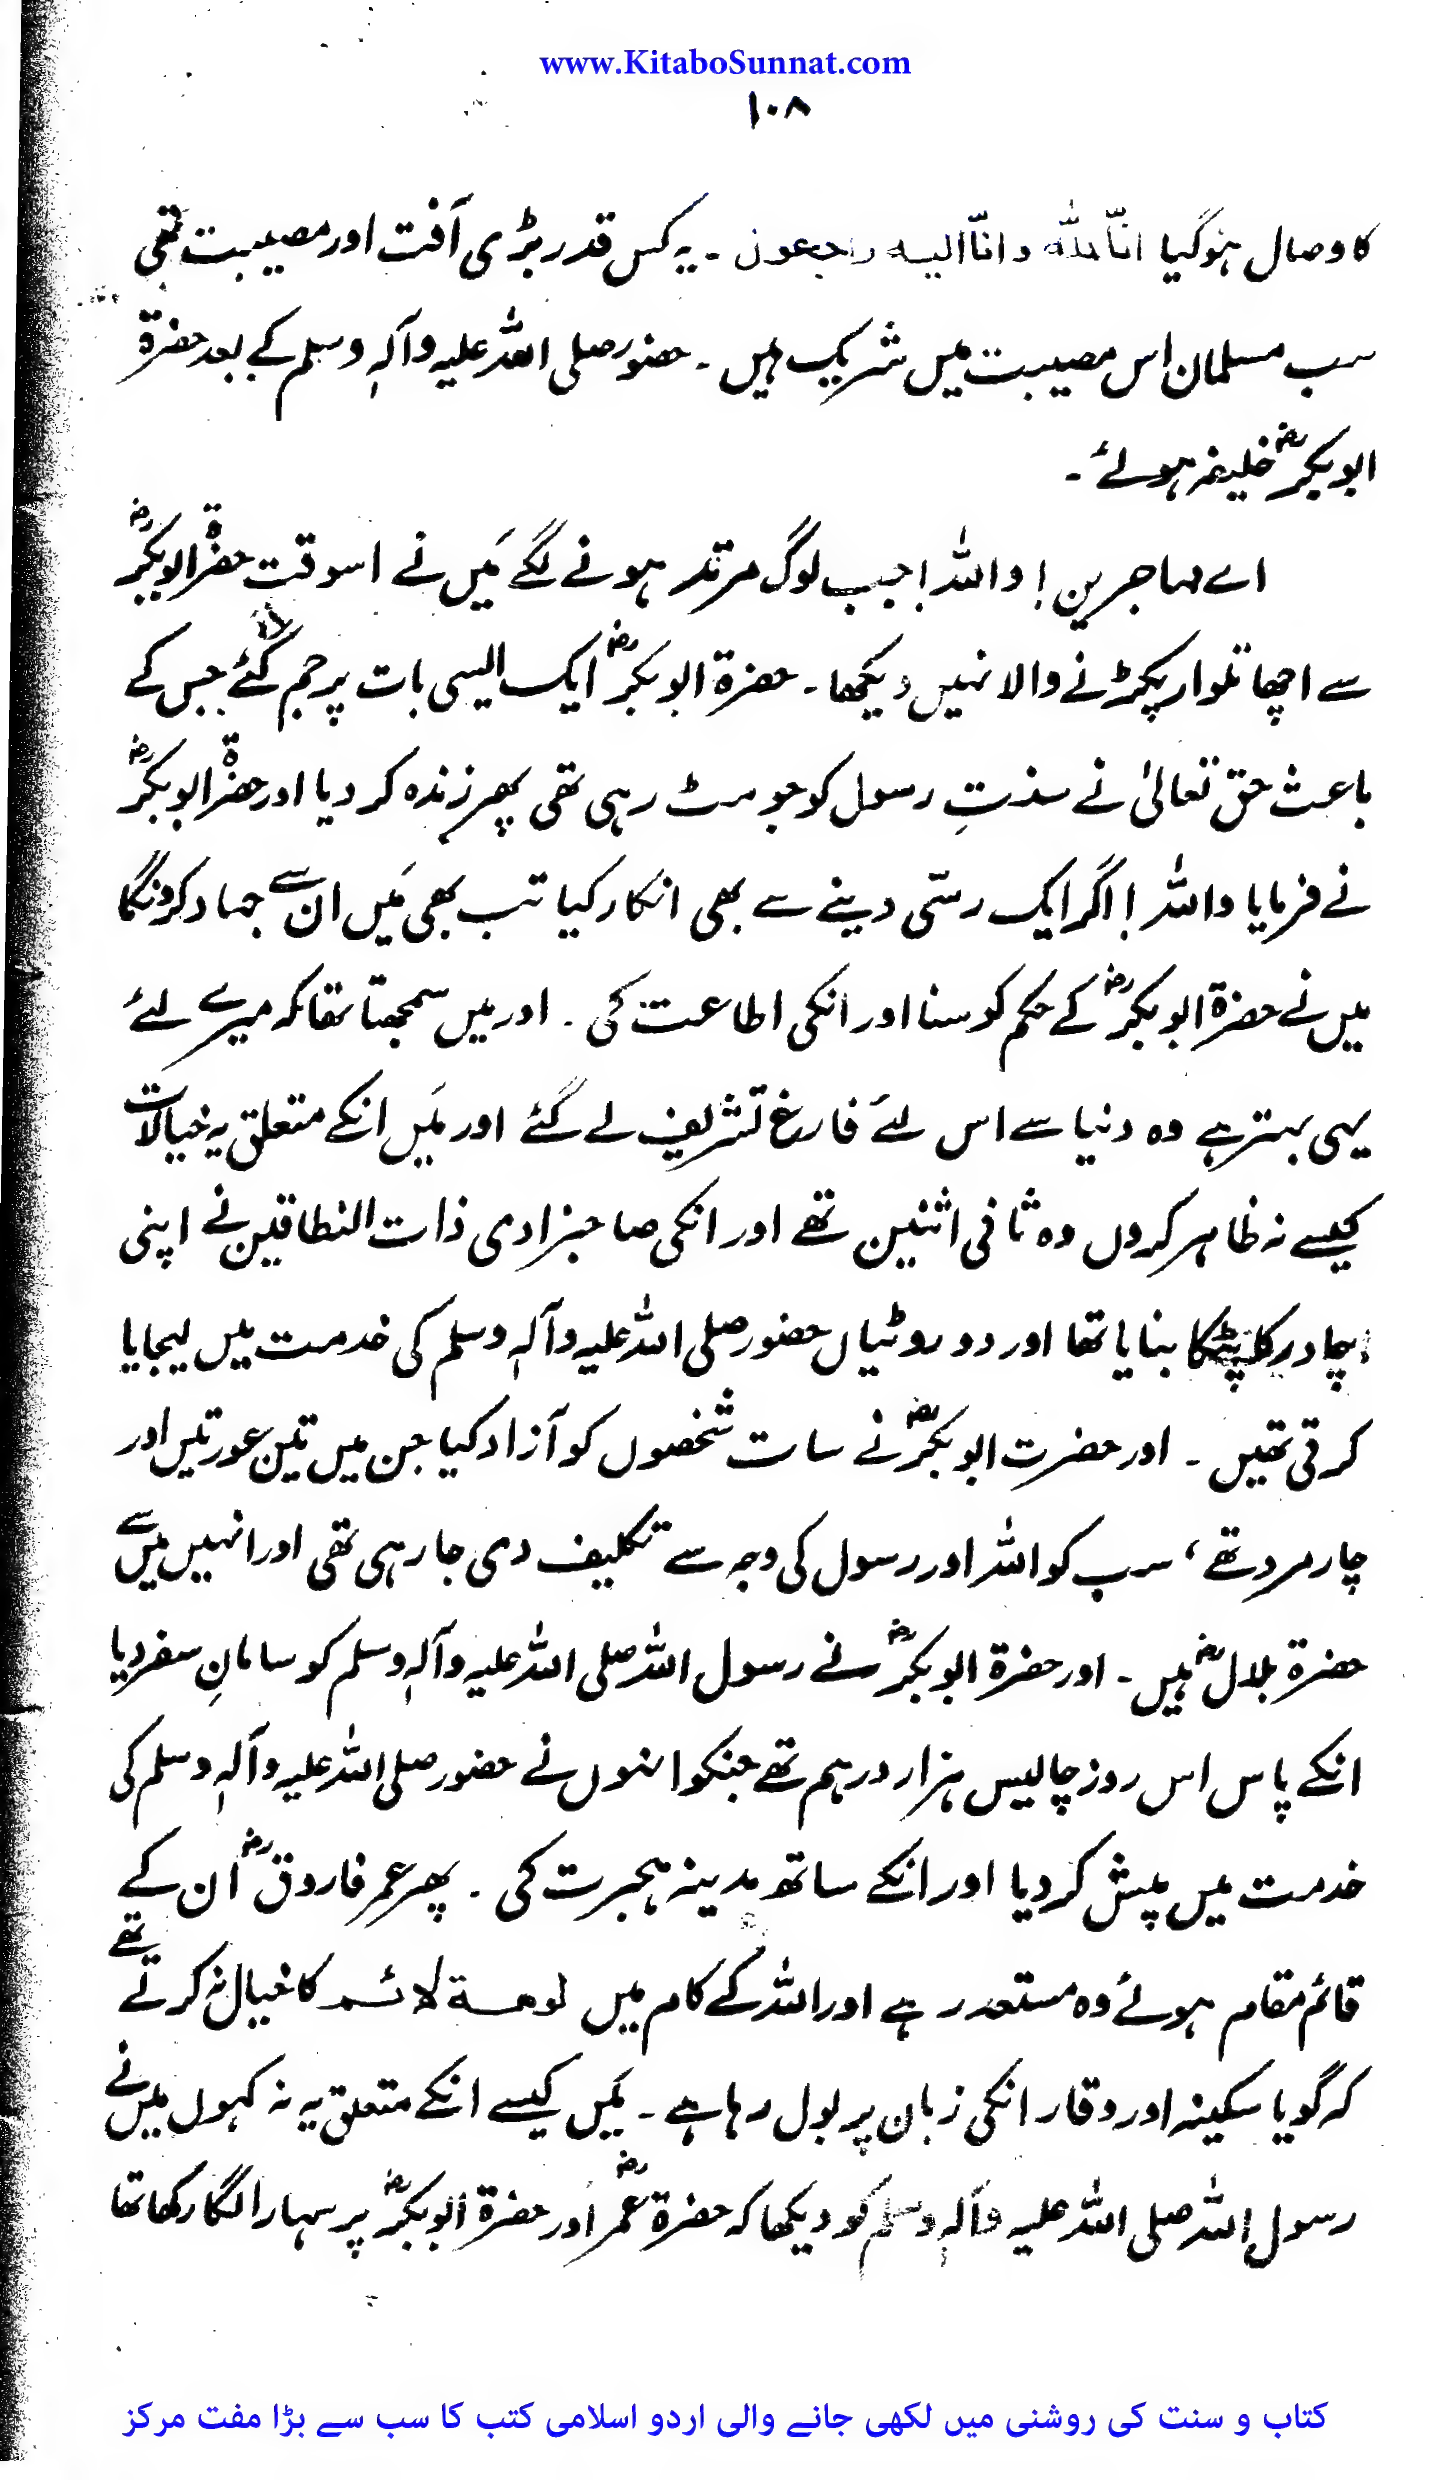 www.KitaboSunnat.com
۱۰۸
کا وصال ہوگیا انّا للہ وانّا الیہ راجعون ۔ یہ کس قدر بڑی آفت اور مصیبت تھی
سب مسلمان اس مصیبت میں شریک ہیں ۔ حضور صلی اللہ علیہ وآلہٖ وسلم کے بعد حضرۃ
ابوبکرؓ خلیفہ ہوئے ۔
اے مہاجرین ! واللہ ! جب لوگ مرتد ہونے لگے مَیں نے اسوقت حضرۃ ابوبکرؓ
سے اچھا تلوار پکڑنے والا نہیں دیکھا ۔ حضرۃ ابوبکرؓ ایک ایسی بات پر جم گئے جس کے
باعث حق تعالیٰ نے سنتِ رسول کو جو مٹ رہی تھی پھر زندہ کر دیا اور حضرۃ ابوبکرؓ
نے فرمایا واللہ ! اگر ایک رسّی دینے سے بھی انکار کیا تب بھی مَیں ان سے جہاد کرونگا
میں نے حضرۃ ابوبکرؓ کے حکم کو سنا اور انکی اطاعت کی ۔ اور میں سمجھتا تھا کہ میرے لئے
یہی بہتر ہے وہ دنیا سے اس لئے فارغ تشریف لے گئے اور مَیں انکے متعلق یہ خیالات
کیسے نہ ظاہر کروں وہ ثانی اثنین تھے اور انکی صاحبزادی ذات النطاقین نے اپنی
چادر کا پٹکا بنایا تھا اور دو روٹیاں حضور صلی اللہ علیہ وآلہٖ وسلم کی خدمت میں لیجایا
کرتی تھیں ۔ اور حضرت ابوبکرؓ نے سات شخصوں کو آزاد کیا جن میں تین عورتیں اور
چار مرد تھے ، سب کو اللہ اور رسول کی وجہ سے تکلیف دی جا رہی تھی اور انہیں میں سے
حضرۃ بلالؓ ہیں ۔ اور حضرۃ ابوبکرؓ نے رسول اللہ صلی اللہ علیہ وآلہٖ وسلم کو سامانِ سفر دیا
انکے پاس اس روز چالیس ہزار درہم تھے جنکو انہوں نے حضور صلی اللہ علیہ وآلہٖ وسلم کی
خدمت میں پیش کر دیا اور انکے ساتھ مدینہ ہجرت کی ۔ پھر عمر فاروقؓ اُن کے
قائم مقام ہوئے وہ مستعد رہے اور اللہ کے کام میں لومۃ لائم کا خیال نہ کرتے تھے
کہ گویا سکینہ اور وقار انکی زبان پر بول رہا ہے ۔ مَیں کیسے انکے متعلق یہ نہ کہوں میں نے
رسول اللہ صلی اللہ علیہ وآلہٖ وسلم کو دیکھا کہ حضرۃ عمرؓ اور حضرۃ ابوبکرؓ پر سہارا لگا رکھا تھا
کتاب و سنت کی روشنی میں لکھی جانے والی اردو اسلامی کتب کا سب سے بڑا مفت مرکز